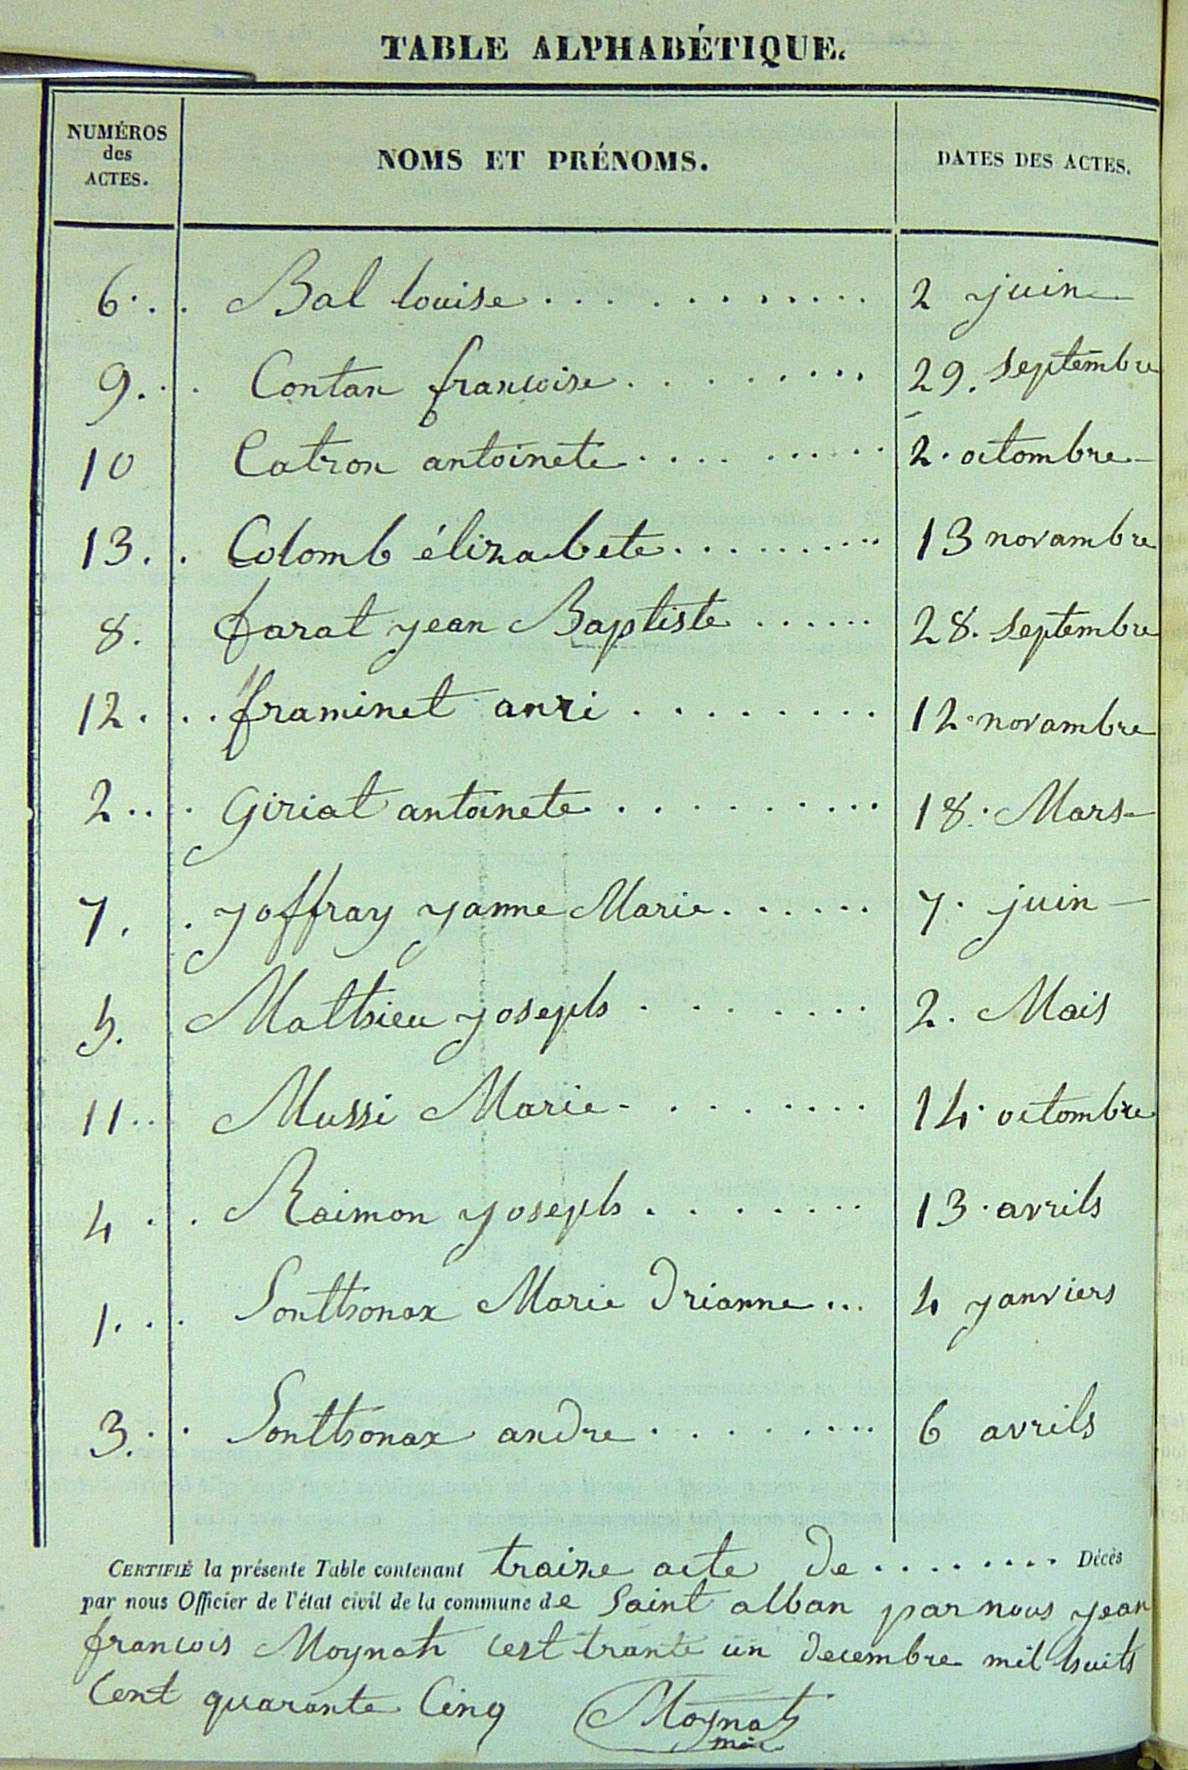 TABLE ALPHABÉTIQUE.
NUMÉROS des ACTES. NOMS ET PRÉNOMS. DATES DES ACTES.
6. . . Bal louise . . . . . . . . . . . 2 juin
9. . . Contan francoise . . . . . . . . 29. septembre
10 Catron antoinete . . . . . . . . . 2. octombre
13. . Colomb élizabete . . . . . . . . . 13 novambre
8. farat yean Baptiste . . . . . . 28. septembre
12. . . . framinet anri . . . . . . . . 12. novambre
2. . . giriat antoinete . . . . . . . . . 18. Mars
7. . yoffray yanne Marie . . . . . . 7. juin
5. Matthieu yoseph . . . . . . . 2. Mais
11. . Mussi Marie . . . . . . . 14. octombre
4 . . Raimon yoseph . . . . . . . 13. avrils
1. . . Sontthonax Marie Drianne ... 4 yanviers
3. . . Sontthonax andre . . . . . . . . 6 avrils
CERTIFIÉ la présente Table contenant traize acte de . . . . . . . . Décès
par nous Officier de l'état civil de la commune de saint alban par nous yean
francois Moynat cest trante un decembre mil huits
Cent quarante Cinq Moynat